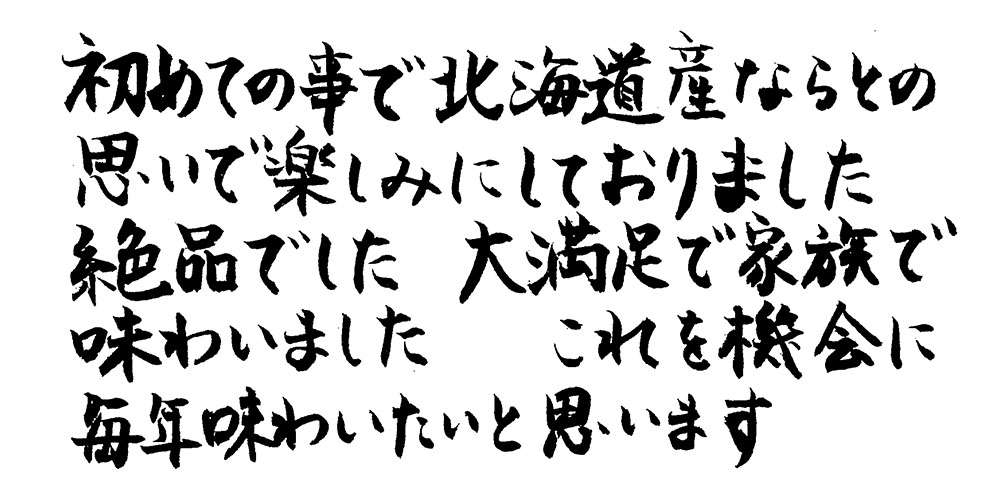 初めての事で北海道産ならとの
思いで楽しみにしておりました
絶品でした　大満足で家族で
味わいました　　これを機会に
毎年味わいたいと思います